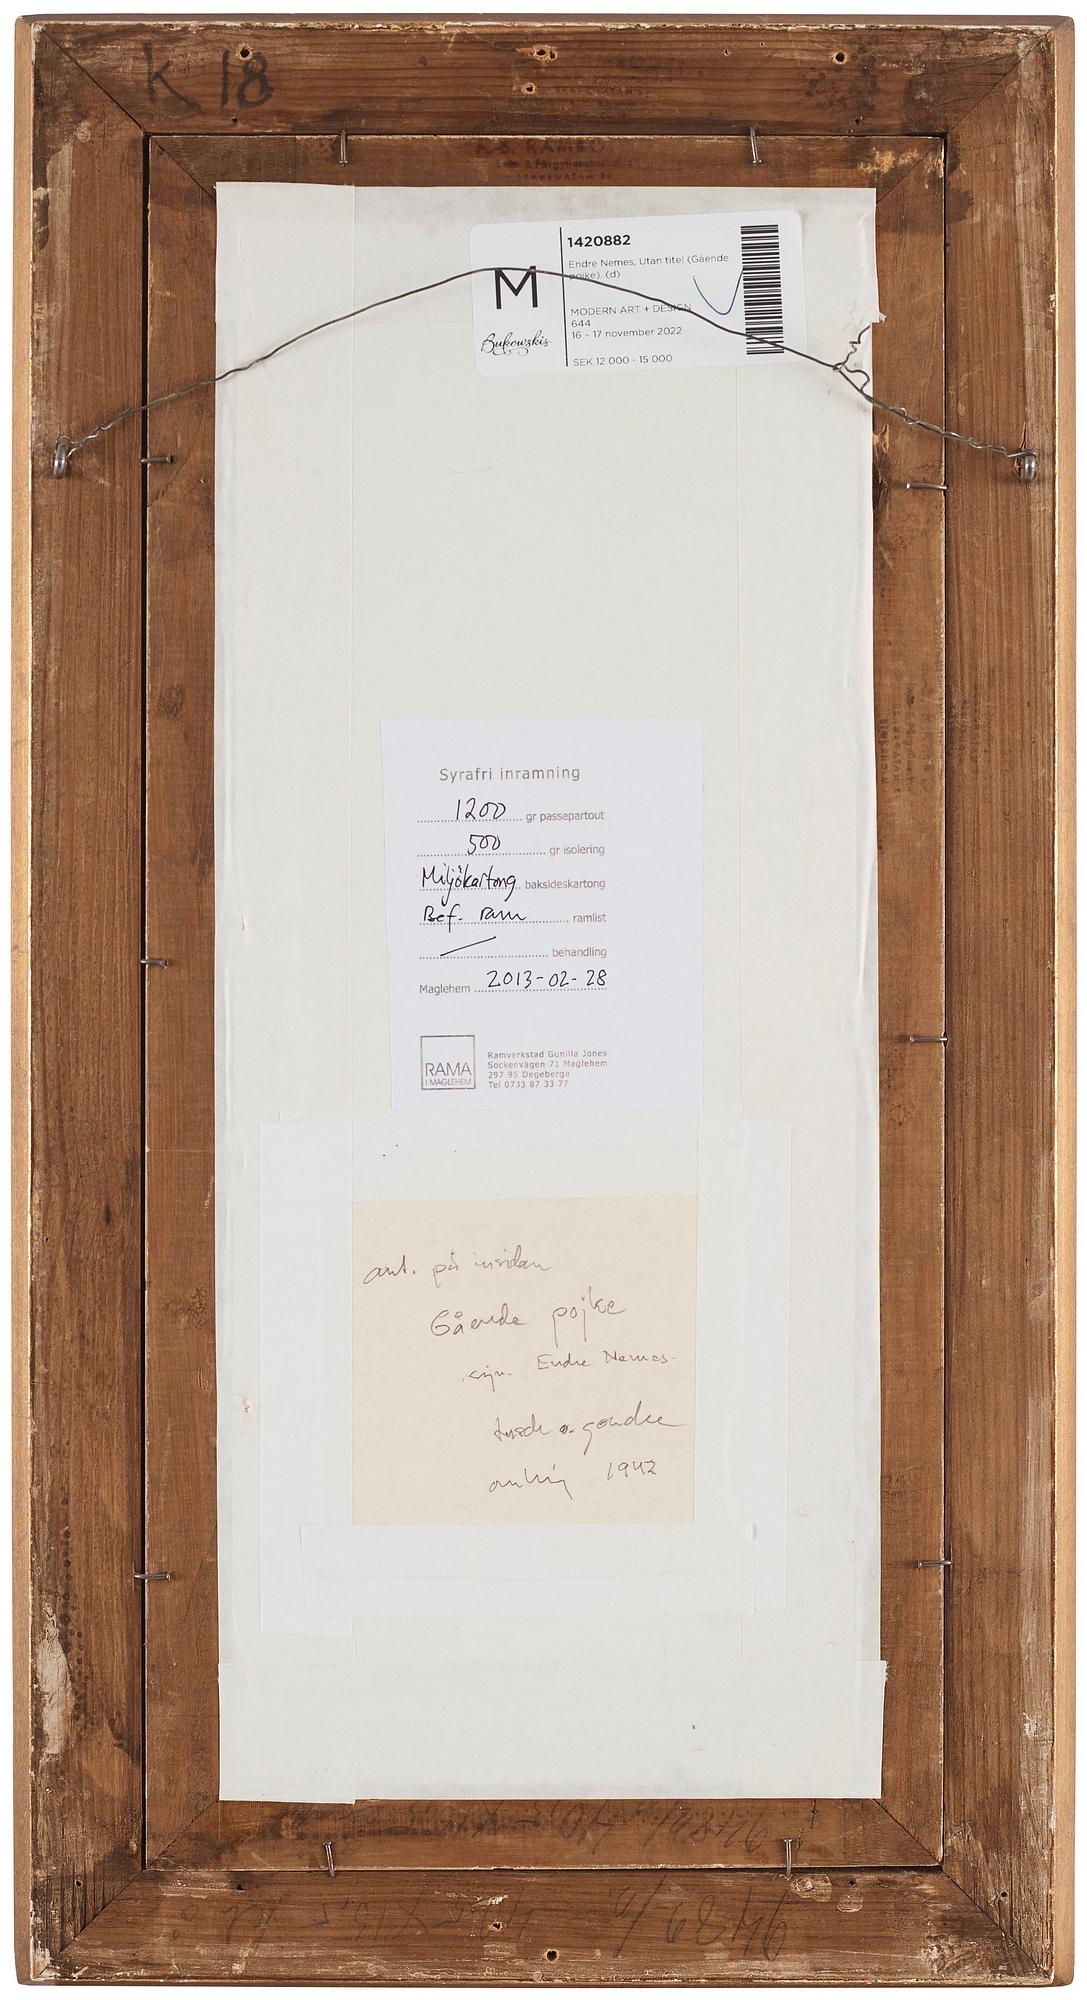 K 18
A.B. RAMBO
1420882
Endre Nemes, Utan titel (Gående
pojke). (d)
M
MODERN ART + DESIGN
644
16 - 17 november 2022
Bukowskis
SEK 12 000 - 15 000
Syrafri inramning
1200 gr passepartout
500 gr isolering
Miljökartong baksideskartong
Bef. ram ramlist
behandling
Maglehem 2013-02-28
RAMA
I MAGLEHEM
Ramverkstad Gunilla Jones
Sockenvägen 71 Maglehem
297 95 Degeberga
Tel 0733 87 33 77
ant. på insidan
Gående pojke
sign. Endre Nemes
tusch o. gouache
omkring 1942